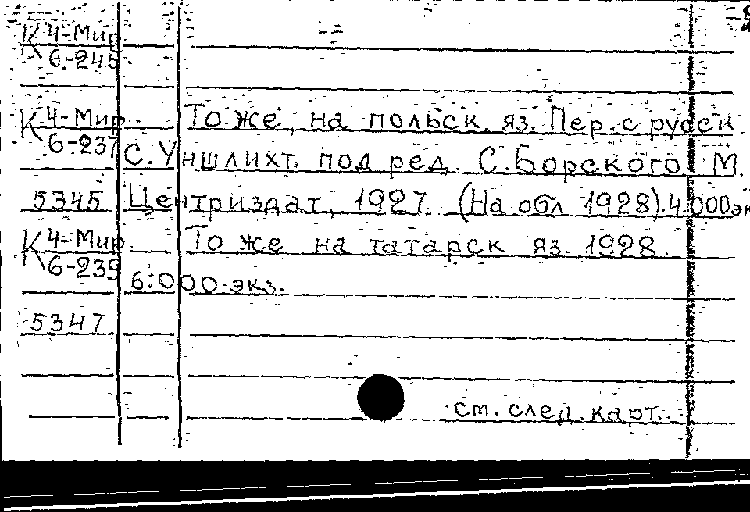 К 4-Мир
6-245
К 4-Мир То же, на польск. яз. Пер. с русск
6-237 С. Уншлихт под ред. С. Борского М.
5345 Центриздат, 1927. (На обл 1928). 4.000 эк
К 4-Мир То же на татарск яз. 1928.
6-239 6.000 экз.
5347
см. след. карт.